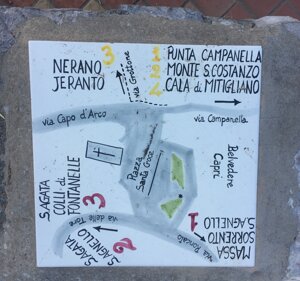 3
NERANO
JERANTO
via Grottone
1
2
PUNTA CAMPANELLA
MONTE S. COSTANZO
CALA di MITIGLIANO
via Capo d'Arco
via Campanella
Piazza
Santa Croce
Belvedere
Capri
S. AGATA
COLLI di
FONTANELLE
3
via delle Tore
S. AGATA
S. AGNELLO
2
1
via Roncato
MASSA
SORRENTO
S. AGNELLO